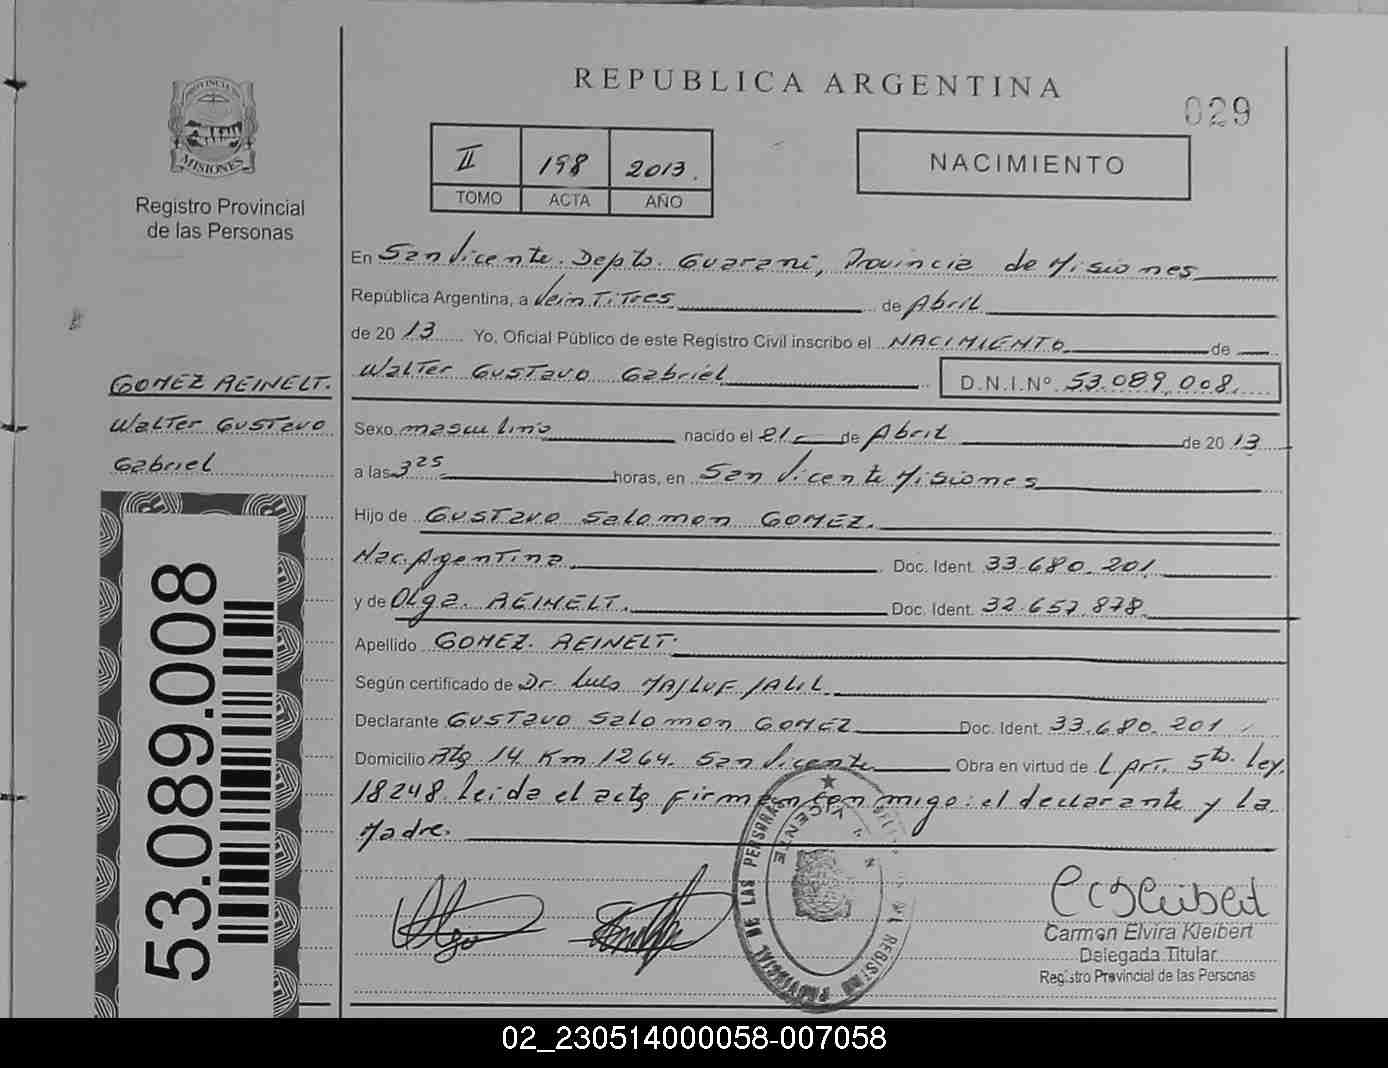 REPUBLICA ARGENTINA
029
PROVINCIA DE
MISIONES
Registro Provincial
de las Personas
II 198 2013.
TOMO ACTA AÑO
NACIMIENTO
En San Vicente. Depto. Guarani, Provincia de Misiones
República Argentina, a Vein Titres de Abril
de 20 13 Yo, Oficial Público de este Registro Civil inscribo el NACIMIENTO de
Walter Gustavo Gabriel D.N.I.Nº 53.089.008.
GOMEZ REINELT.
Walter Gustavo
Gabriel
Sexo masculino nacido el 21 de Abril de 20 13
a las 3 25 horas, en San Vicente Misiones
Hijo de Gustavo Salomon GOMEZ.
Nac. Argentina Doc. Ident. 33.680.201
y de Olga. REINELT. Doc. Ident. 32.657.878
Apellido GOMEZ. REINELT.
Según certificado de Dr. Luis
Declarante Gustavo Salomon GOMEZ Doc. Ident. 33.680.201
Domicilio Rta 14 Km 1264. San Vicente Obra en virtud de L Art. 5to. Ley.
18248. leida el acta firman con migo: el declarante y la
Madre.
53.089.008
Olga
REGISTRO PROVINCIAL DE LAS PERSONAS
VICENTE
Carmen Elvira Kleibert
Delegada Titular
Registro Provincial de las Personas
02_230514000058-007058